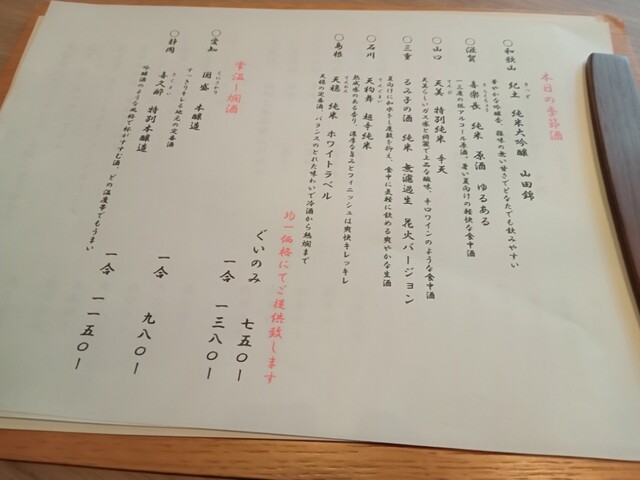 本日の季節酒
○和歌山 紀土 純米大吟醸 山田錦
きっど
華やかな吟醸香、雑味の無い甘さでどなたでも飲みやすい
○滋賀 喜楽長 純米 原酒 ゆるある
きらくちょう
一三度の低アルコール原酒、暑い夏向けの軽快な食中酒
○山口 天美 特別純米 辛天
てんび
天美らしいガス感と綺麗で上品な酸味、辛口ワインのような食中酒
○三重 るみ子の酒 純米 無濾過生 花火バージョン
夏向けに加水をし度数を抑え、食中に気軽に飲める爽やかな生酒
○石川 天狗舞 超辛純米
てんぐまい
熟成感のある香り、濃厚な旨みとフィニッシュは爽快キレッキレ
○島根 天穏 純米 ホワイトラベル
てんおん
天穏の定番酒、バランスのとれた味わいで冷酒から熱燗まで
均一価格にてご提供致します
ぐいのみ 七五〇ー
一合 一三八〇ー
常温ー燗酒
○愛知 国盛 本醸造
くにざかり
すっきりキレる地元の定番酒
一合 九八〇ー
○静岡 喜久醉 特別本醸造
きくよい
吟醸酒のような風格で杯がすすむ酒、どの温度帯でもうまい
一合 一一五〇ー